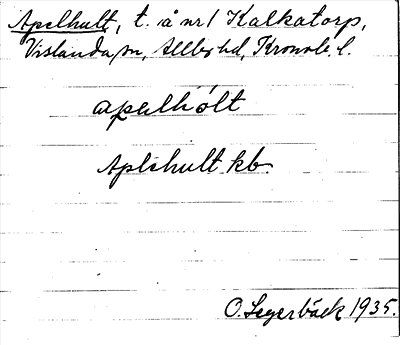 Apelhult, t. å nr 1 Kalkatorp,
Vislanda sn, Allbo hd, Kronob. l.
apelhólt
Aplehult kb.
O. Segerbäck 1935.